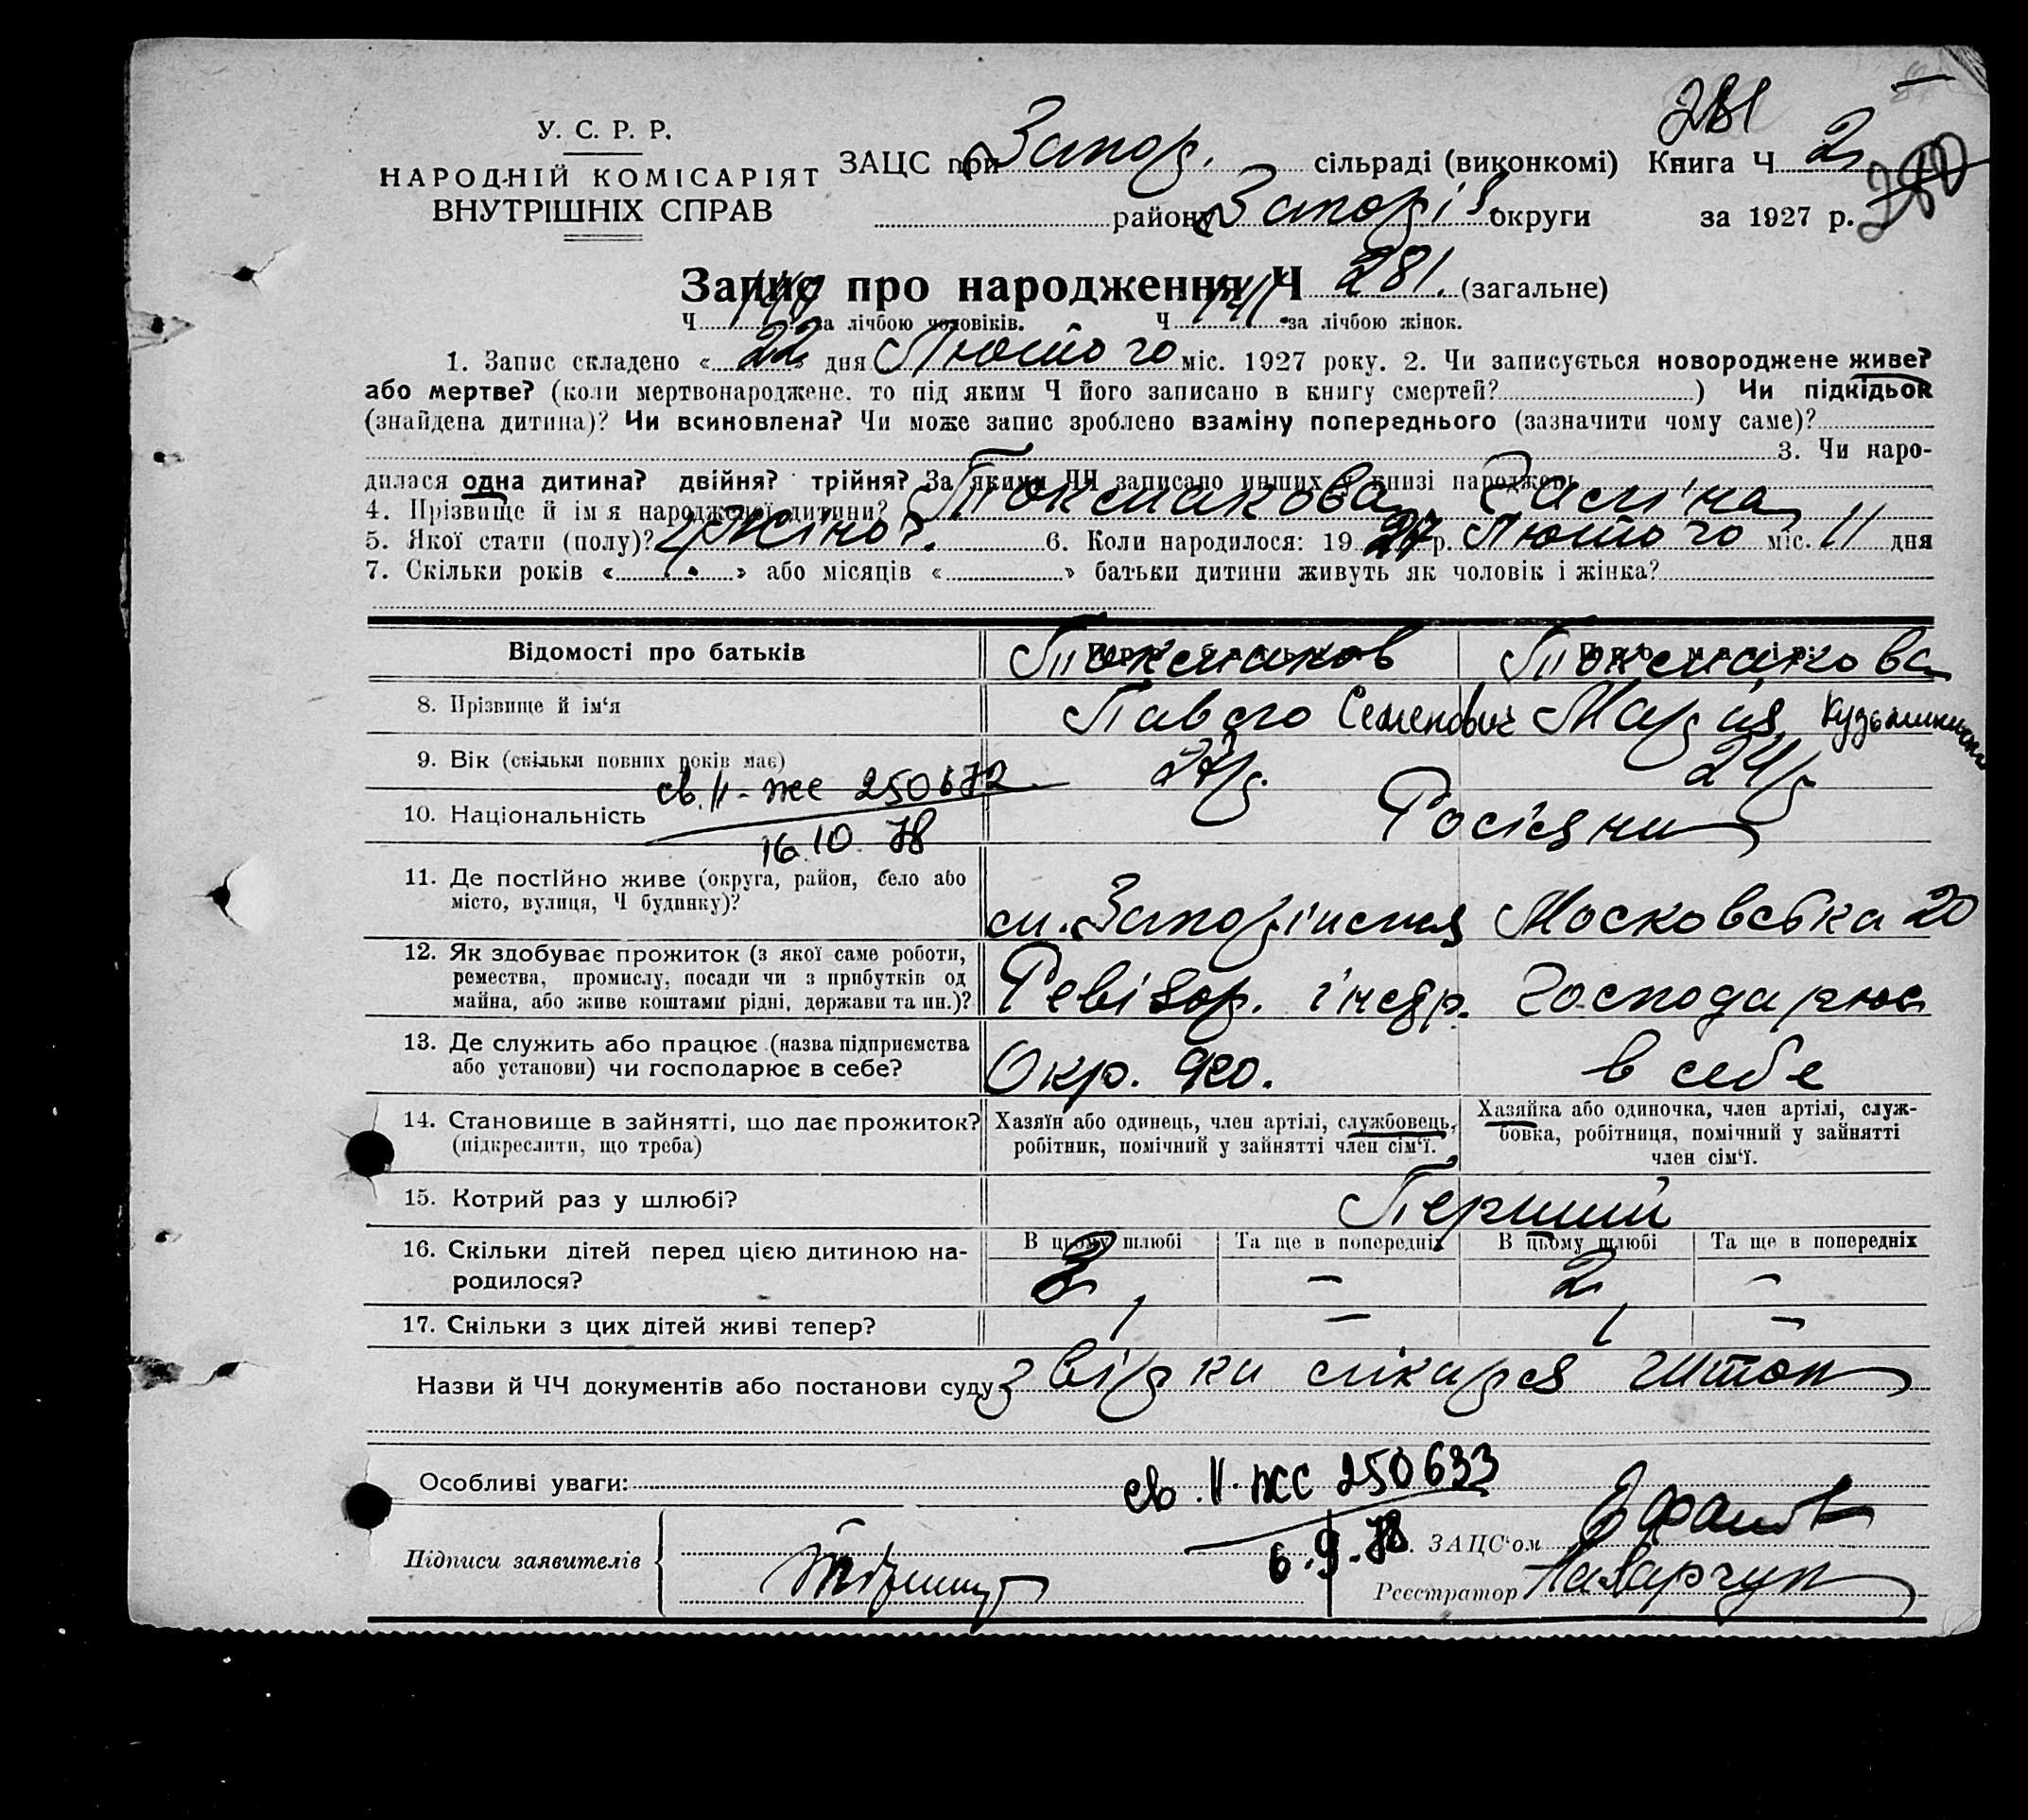 281
У. С. Р. Р.
НАРОДНІЙ КОМІСАРІЯТ
ВНУТРІШНІХ СПРАВ
ЗАЦС при Запор. сільраді (виконкомі) Книга Ч 2
району Запоріз округи за 1927 р. 280
Запис про народження Ч 281. (загальне)
Ч за лічбою чоловіків. Ч 141 за лічбою жінок.
1. Запис складено « 22 » дня Лютого міс. 1927 року. 2. Чи записується новороджене живе?
або мертве? (коли мертвонароджене, то під яким Ч його записано в книгу смертей? ) Чи підкідьок
(знайдена дитина)? Чи всиновлена? Чи може запис зроблено взаміну попереднього (зазначити чому саме)?
3. Чи наро-
дилася одна дитина? двійня? трійня? За якими ЧЧ записано инших у книзі народжень
4. Прізвище й імя народженої дитини? Токмакова Галіна
5. Якої стати (полу)? Жіно 6. Коли народилося: 19 27 р. Лютого міс. 11 дня
7. Скільки років « » або місяців « » батьки дитини живуть як чоловік і жінка?
Відомості про батьків Токмаков Токмакова
8. Прізвище й ім‘я Павло Семенович Марія
9. Вік (скільки повних років має) 27 р. 24 р
св. II-жс 250672
10. Національність Росіяни
16.10.78
11. Де постійно живе (округа, район, село або
місто, вулиця, Ч будинку)? м. Запоріжжя Московська 20
12. Як здобуває прожиток (з якої саме роботи,
ремества, промислу, посади чи з прибутків од
майна, або живе коштами рідні, держави та ин.)? Ревізор. Господарює
13. Де служить або працює (назва підприємства
або установи) чи господарює в себе? Окр. в себе
14. Становище в зайнятті, що дає прожиток?
(підкреслити, що треба)
Хазяїн або одинець, член артілі, службовець,
робітник, помічний у зайнятті член сім‘ї.
Хазяйка або одиночка, член артілі, служ-
бовка, робітниця, помічний у зайнятті
член сім‘ї.
15. Котрий раз у шлюбі? Перший
16. Скільки дітей перед цією дитиною на-
родилося?
В цьому шлюбі Та ще в попередніх В цьому шлюбі Та ще в попередніх
2 — 2 —
17. Скільки з цих дітей живі тепер? 1 — 1 —
Назви й ЧЧ документів або постанови суду лікаря
Особливі уваги: св. II-жс 250633
6.9.78
Підписи заявителів
ЗАЦС‘ом
Реєстратор